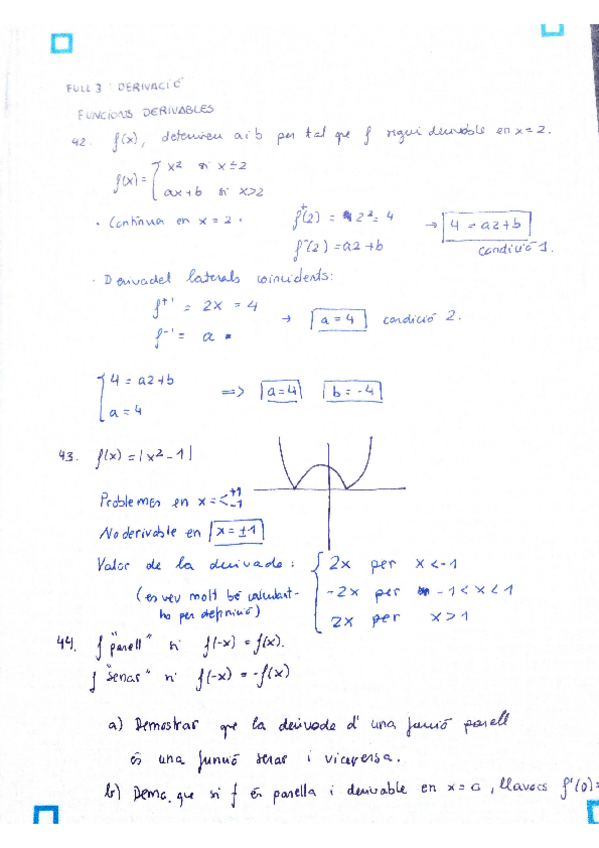 FULL 3 : DERIVACIÓ
FUNCIONS DERIVABLES
42. f(x), determineu a i b per tal que f sigui derivable en x = 2.
f(x) = { x² si x ≤ 2
ax + b si x > 2
· Contínua en x = 2 · f⁺(2) = 2² = 4 → 4 = a2 + b
f⁻(2) = a2 + b condició 1.
· Derivadel laterals coincidents:
f⁺' = 2x = 4 → a = 4 condició 2.
f⁻' = a
{ 4 = a2 + b
a = 4 => a = 4 b = -4
43. f(x) = |x² - 1|
Problemes en x = < +1 -1
No derivable en x = ±1
Valor de la derivada : { 2x per x < -1
(es veu molt bé calculant- -2x per -1 < x < 1
ho per definició) 2x per x > 1
44. f "parell" si f(-x) = f(x).
f "senar" si f(-x) = -f(x)
a) Demostrar que la derivada d' una funció parell
és una funció senar i viceversa.
b) Demo. que si f és parella i derivable en x = 0, llavors f'(0) =